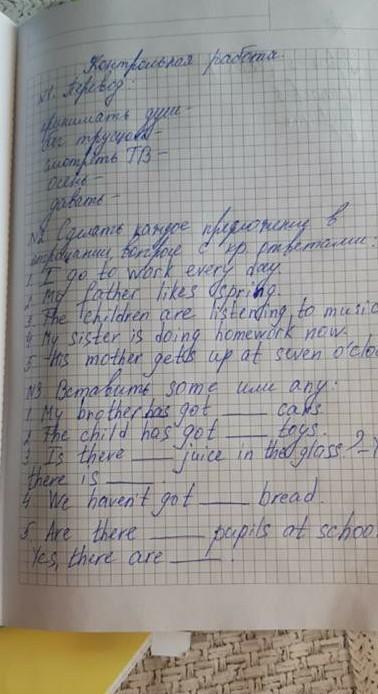 Контрольная работа.
№1. Перевод:
принимать душ –
бег трусцой –
смотреть ТВ –
осень –
давать –
№2 Сделать каждое предложение в
отрицании, вопросе с кр. ответами:
1. I go to work every day.
2. My father likes spring.
3. The children are listening to music
4. My sister is doing homework now.
5. His mother gets up at seven o'cloc
№3 Вставить some или any:
1. My brother has got ___ cars.
2. The child has got ___ toys.
3. Is there ___ juice in the glass? –
there is ___.
4. We haven't got ___ bread.
5. Are there ___ pupils at schoo
Yes, there are ___.